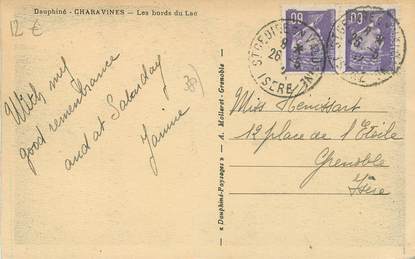 12 €
Dauphiné - CHARAVINES - Les bords du Lac
With my
good remembrance
and at Saturday
Janine
« Dauphiné-Paysages » A. Mollaret - Grenoble
60
60
ISERE
26
Miss
12 place de l'Etoile
Grenoble
Isère